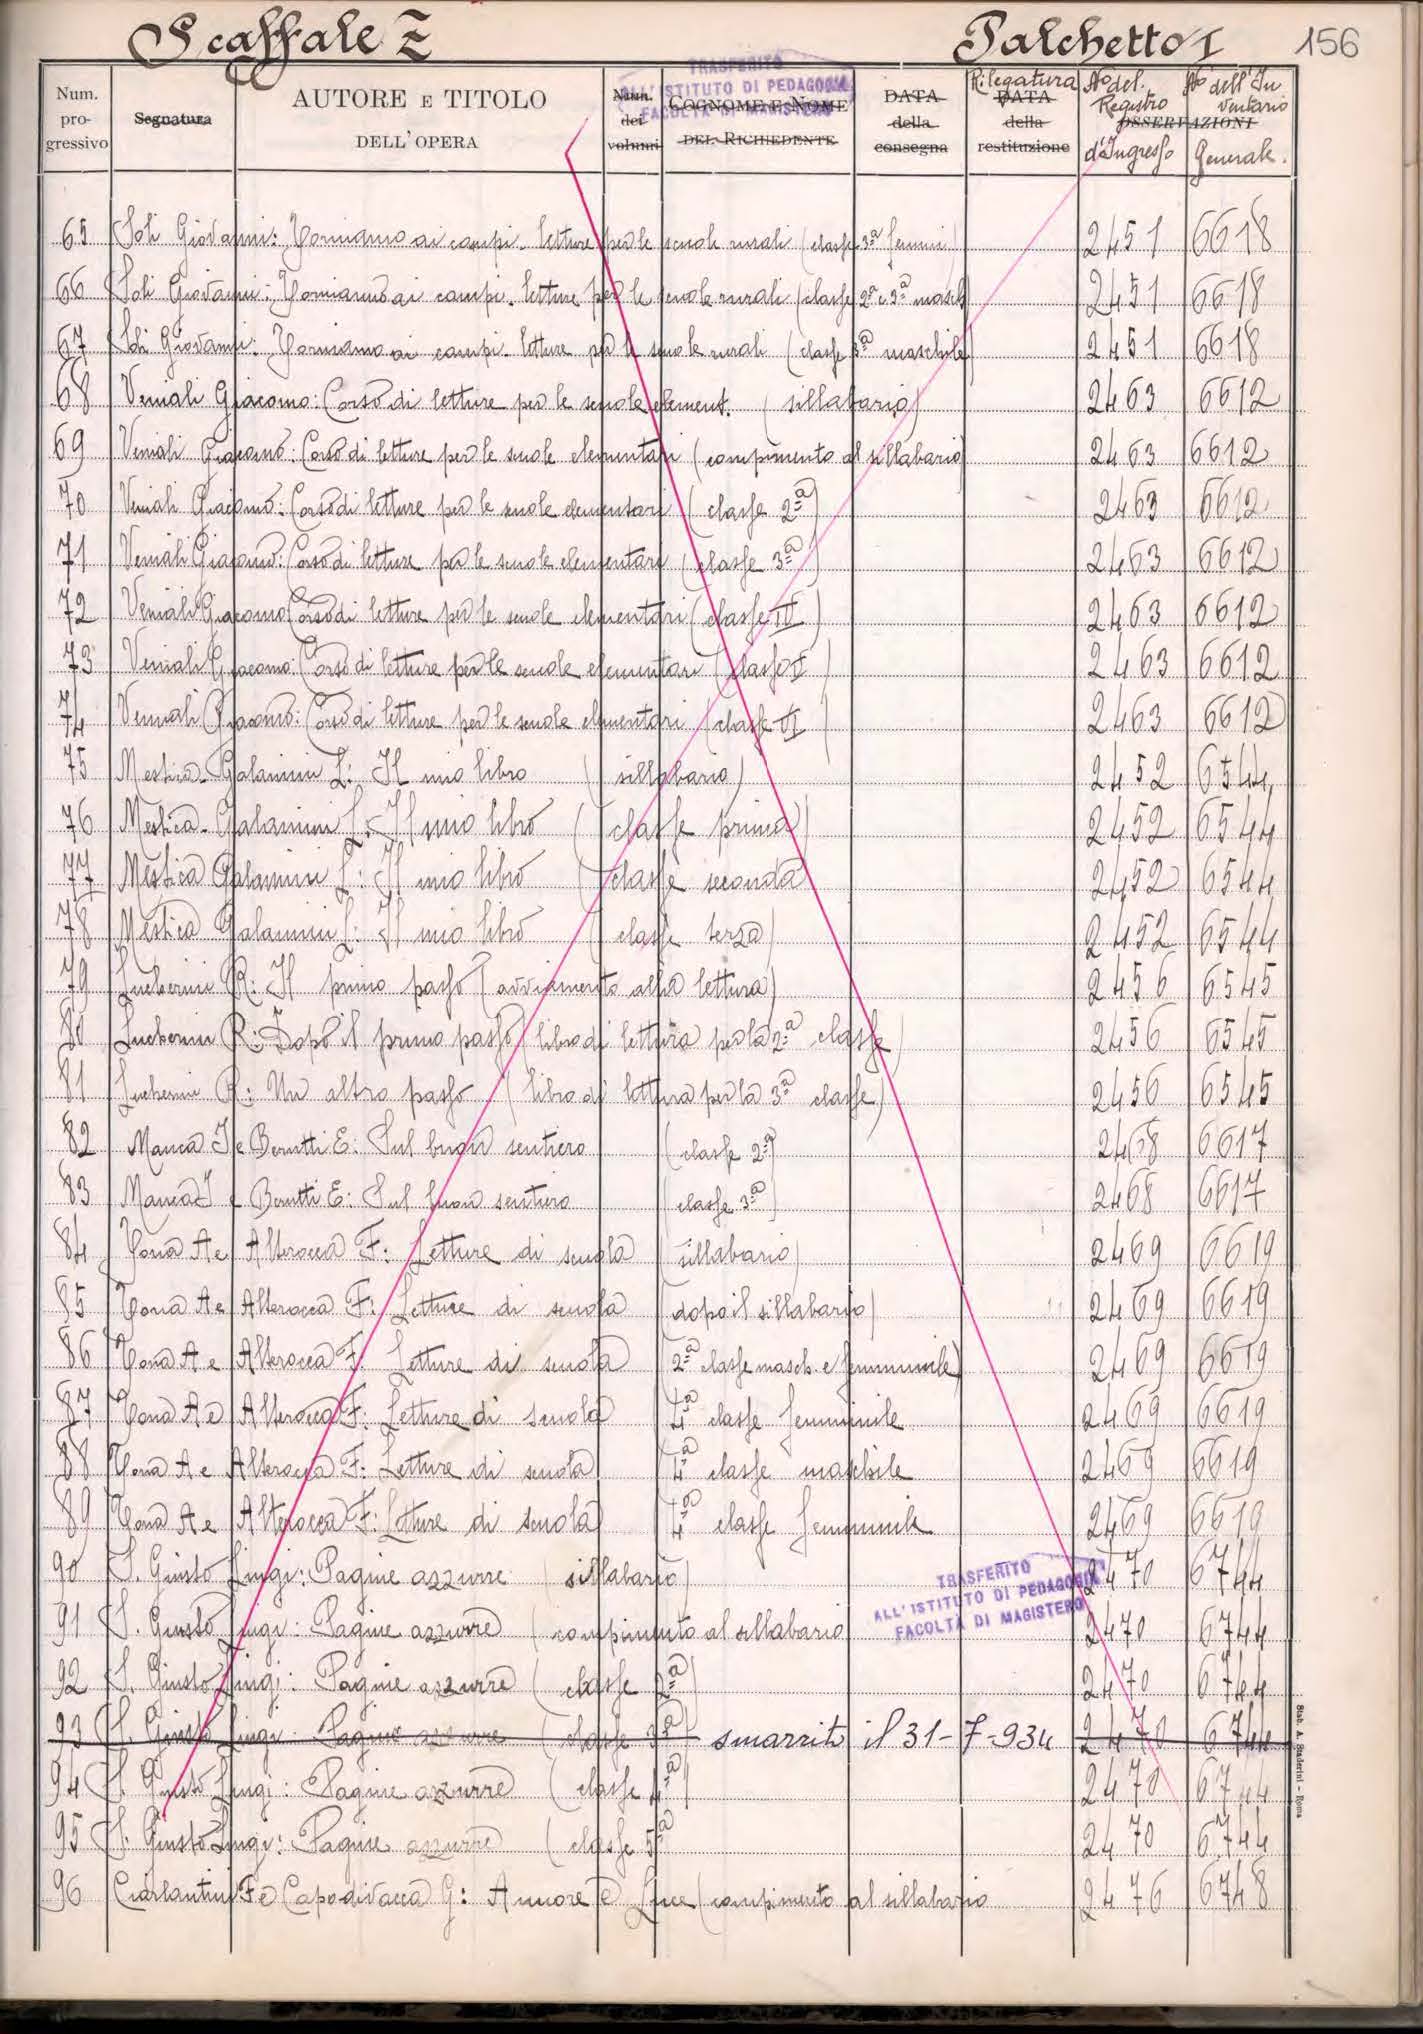 Scaffale Z Palchetto I 156
TRASFERITO
ALL'ISTITUTO DI PEDAGOGIA
FACOLTÀ DI MAGISTERO
Num. progressivo Segnatura AUTORE E TITOLO DELL'OPERA Num. dei volumi COGNOME E NOME DEL RICHIEDENTE DATA della consegna Rilegatura DATA della restituzione No del Registro d'Ingresso OSSERVAZIONI No dell'Inventario Generale.
65 Soli Giovanni: Torniamo ai campi. letture per le scuole rurali (classe 3ª femmi) 2451 6618
66 Soli Giovanni: Torniamo ai campi. letture per le scuole rurali (classe 2ª e 3ª masch) 2451 6618
67 Soli Giovanni: Torniamo ai campi. letture per le scuole rurali (classe 3ª maschile) 2451 6618
68 Veniali Giacomo: Corso di letture per le scuole element. (sillabario) 2463 6612
69 Veniali Giacomo: Corso di letture per le scuole elementari (compimento al sillabario) 2463 6612
70 Veniali Giacomo: Corso di letture per le scuole elementari (classe 2ª) 2463 6612
71 Veniali Giacomo: Corso di letture per le scuole elementari (classe 3ª) 2463 6612
72 Veniali Giacomo Corso di letture per le scuole elementari (classe IV) 2463 6612
73 Veniali Giacomo: Corso di letture per le scuole elementari (classe V) 2463 6612
74 Veniali Giacomo: Corso di letture per le scuole elementari (classe VI) 2463 6612
75 Mestica-Galamini L: Il mio libro (sillabario) 2452 6544
76 Mestica-Galamini L: Il mio libro (classe prima) 2452 6544
77 Mestica Galamini L: Il mio libro (classe seconda 2452 6544
78 Mestica Galamini L: Il mio libro (classe terza) 2452 6544
79 Lucherini R: Il primo passo (avviamento alla lettura) 2456 6545
80 Lucherini R: Dopo il primo passo (libro di lettura per la 2ª classe) 2456 6545
81 Lucherini R: Un altro passo (libro di lettura per la 3ª classe) 2456 6545
82 Manca I e Berutti E: Sul buon sentiero (classe 2ª) 2468 6617
83 Manca I e Berutti E: Sul buon sentiero (classe 3ª) 2468 6617
84 Tona A e Alterocca F: Letture di scuola (sillabario) 2469 6619
85 Tona A e Alterocca F: Letture di scuola (dopo il sillabario) 2469 6619
86 Tona A e Alterocca F. Letture di scuola (2ª classe masch. e femminile) 2469 6619
87 Tona A e Alterocca F: Letture di scuola 4ª classe femminile 2469 6619
88 Tona A e Alterocca F: Letture di scuola 4ª classe maschile 2469 6619
89 Tona A e Alterocca F: Letture di scuola 4ª classe femminile 2469 6619
90 S. Giusto Luigi: Pagine azzurre (sillabario) 2470 6744
TRASFERITO
ALL'ISTITUTO DI PEDAGOGIA
FACOLTÀ DI MAGISTERO
91 S. Giusto Luigi: Pagine azzurre (compimento al sillabario 2470 6744
92 S. Giusto Luigi: Pagine azzurre (classe 2ª) 2470 6744
93 S. Giusto Luigi: Pagine azzurre (classe 3ª) smarrito il 31-7-934 2470 6744
94 S. Giusto Luigi: Pagine azzurre (classe 4ª) 2470 6744
95 S. Giusto Luigi: Pagine azzurre (classe 5ª 2470 6744
96 Ciarlantini F e Capodivacca G: Amore e Luce (compimento al sillabario 2476 6748
Stab. A. Staderini - Roma